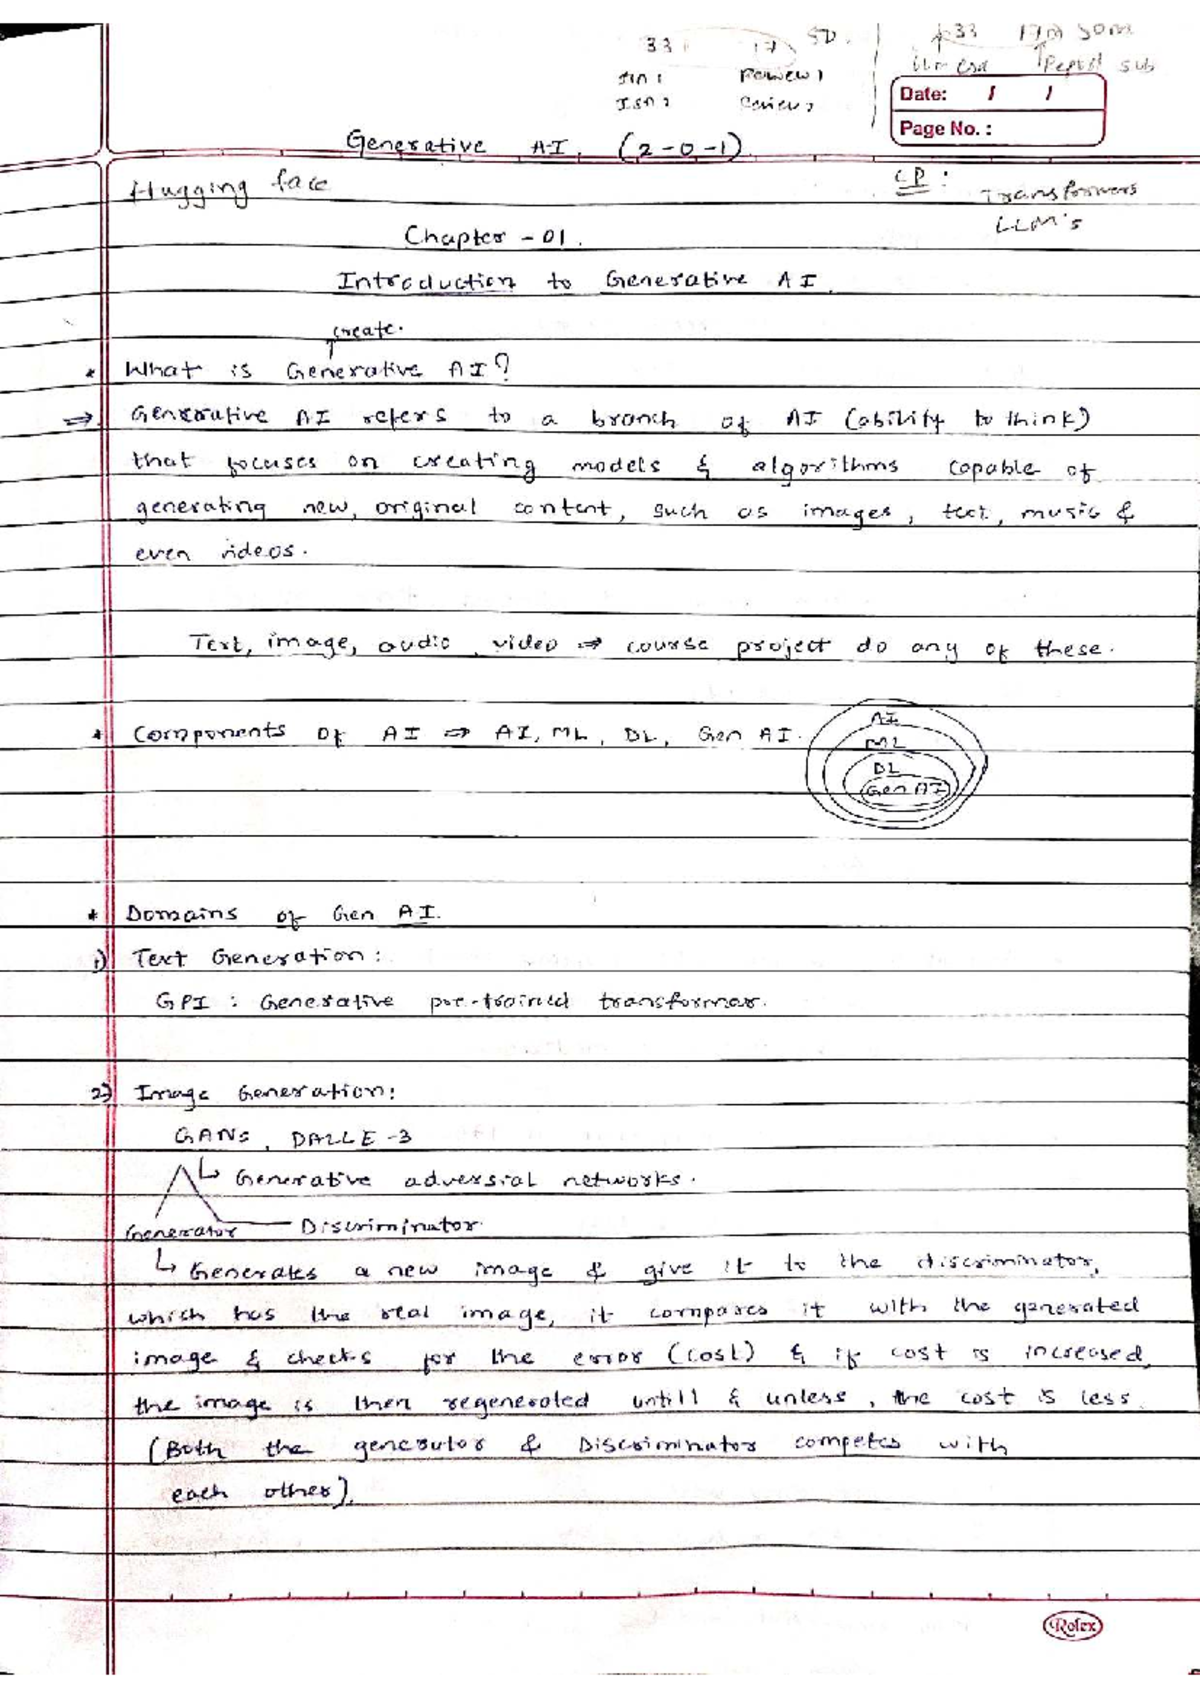 33 17 SD.
33 17 50m
ISA 1 Review 1
ISA 2 Review 2
sub
Date: / /
Page No. :
Generative AI. (2-0-1)
Hugging face
CP : Transformers
LLM's
Chapter - 01.
Introduction to Generative AI.
create.
* What is Generative AI?
⇒ Generative AI refers to a branch of AI (ability to think)
that focuses on creating models & algorithms capable of
generating new, original content, such as images, text, music &
even videos.
Text, image, audio, video ⇒ course project do any of these.
* Components of AI ⇒ AI, ML, DL, Gen AI.
AI
ML
DL
Gen AI
* Domains of Gen AI.
1) Text Generation :
GPT : Generative pre-trained transformer.
2) Image Generation:
GANs, DALLE-3
↳ Generative adversial networks.
Generator Discriminator.
↳ Generates a new image & give it to the discriminator,
which has the real image, it compares it with the generated
image & checks for the error (cost) & if cost is increased,
the image is then regenerated untill & unless, the cost is less.
(Both the generator & Discriminator competes with
each other).
Rolex